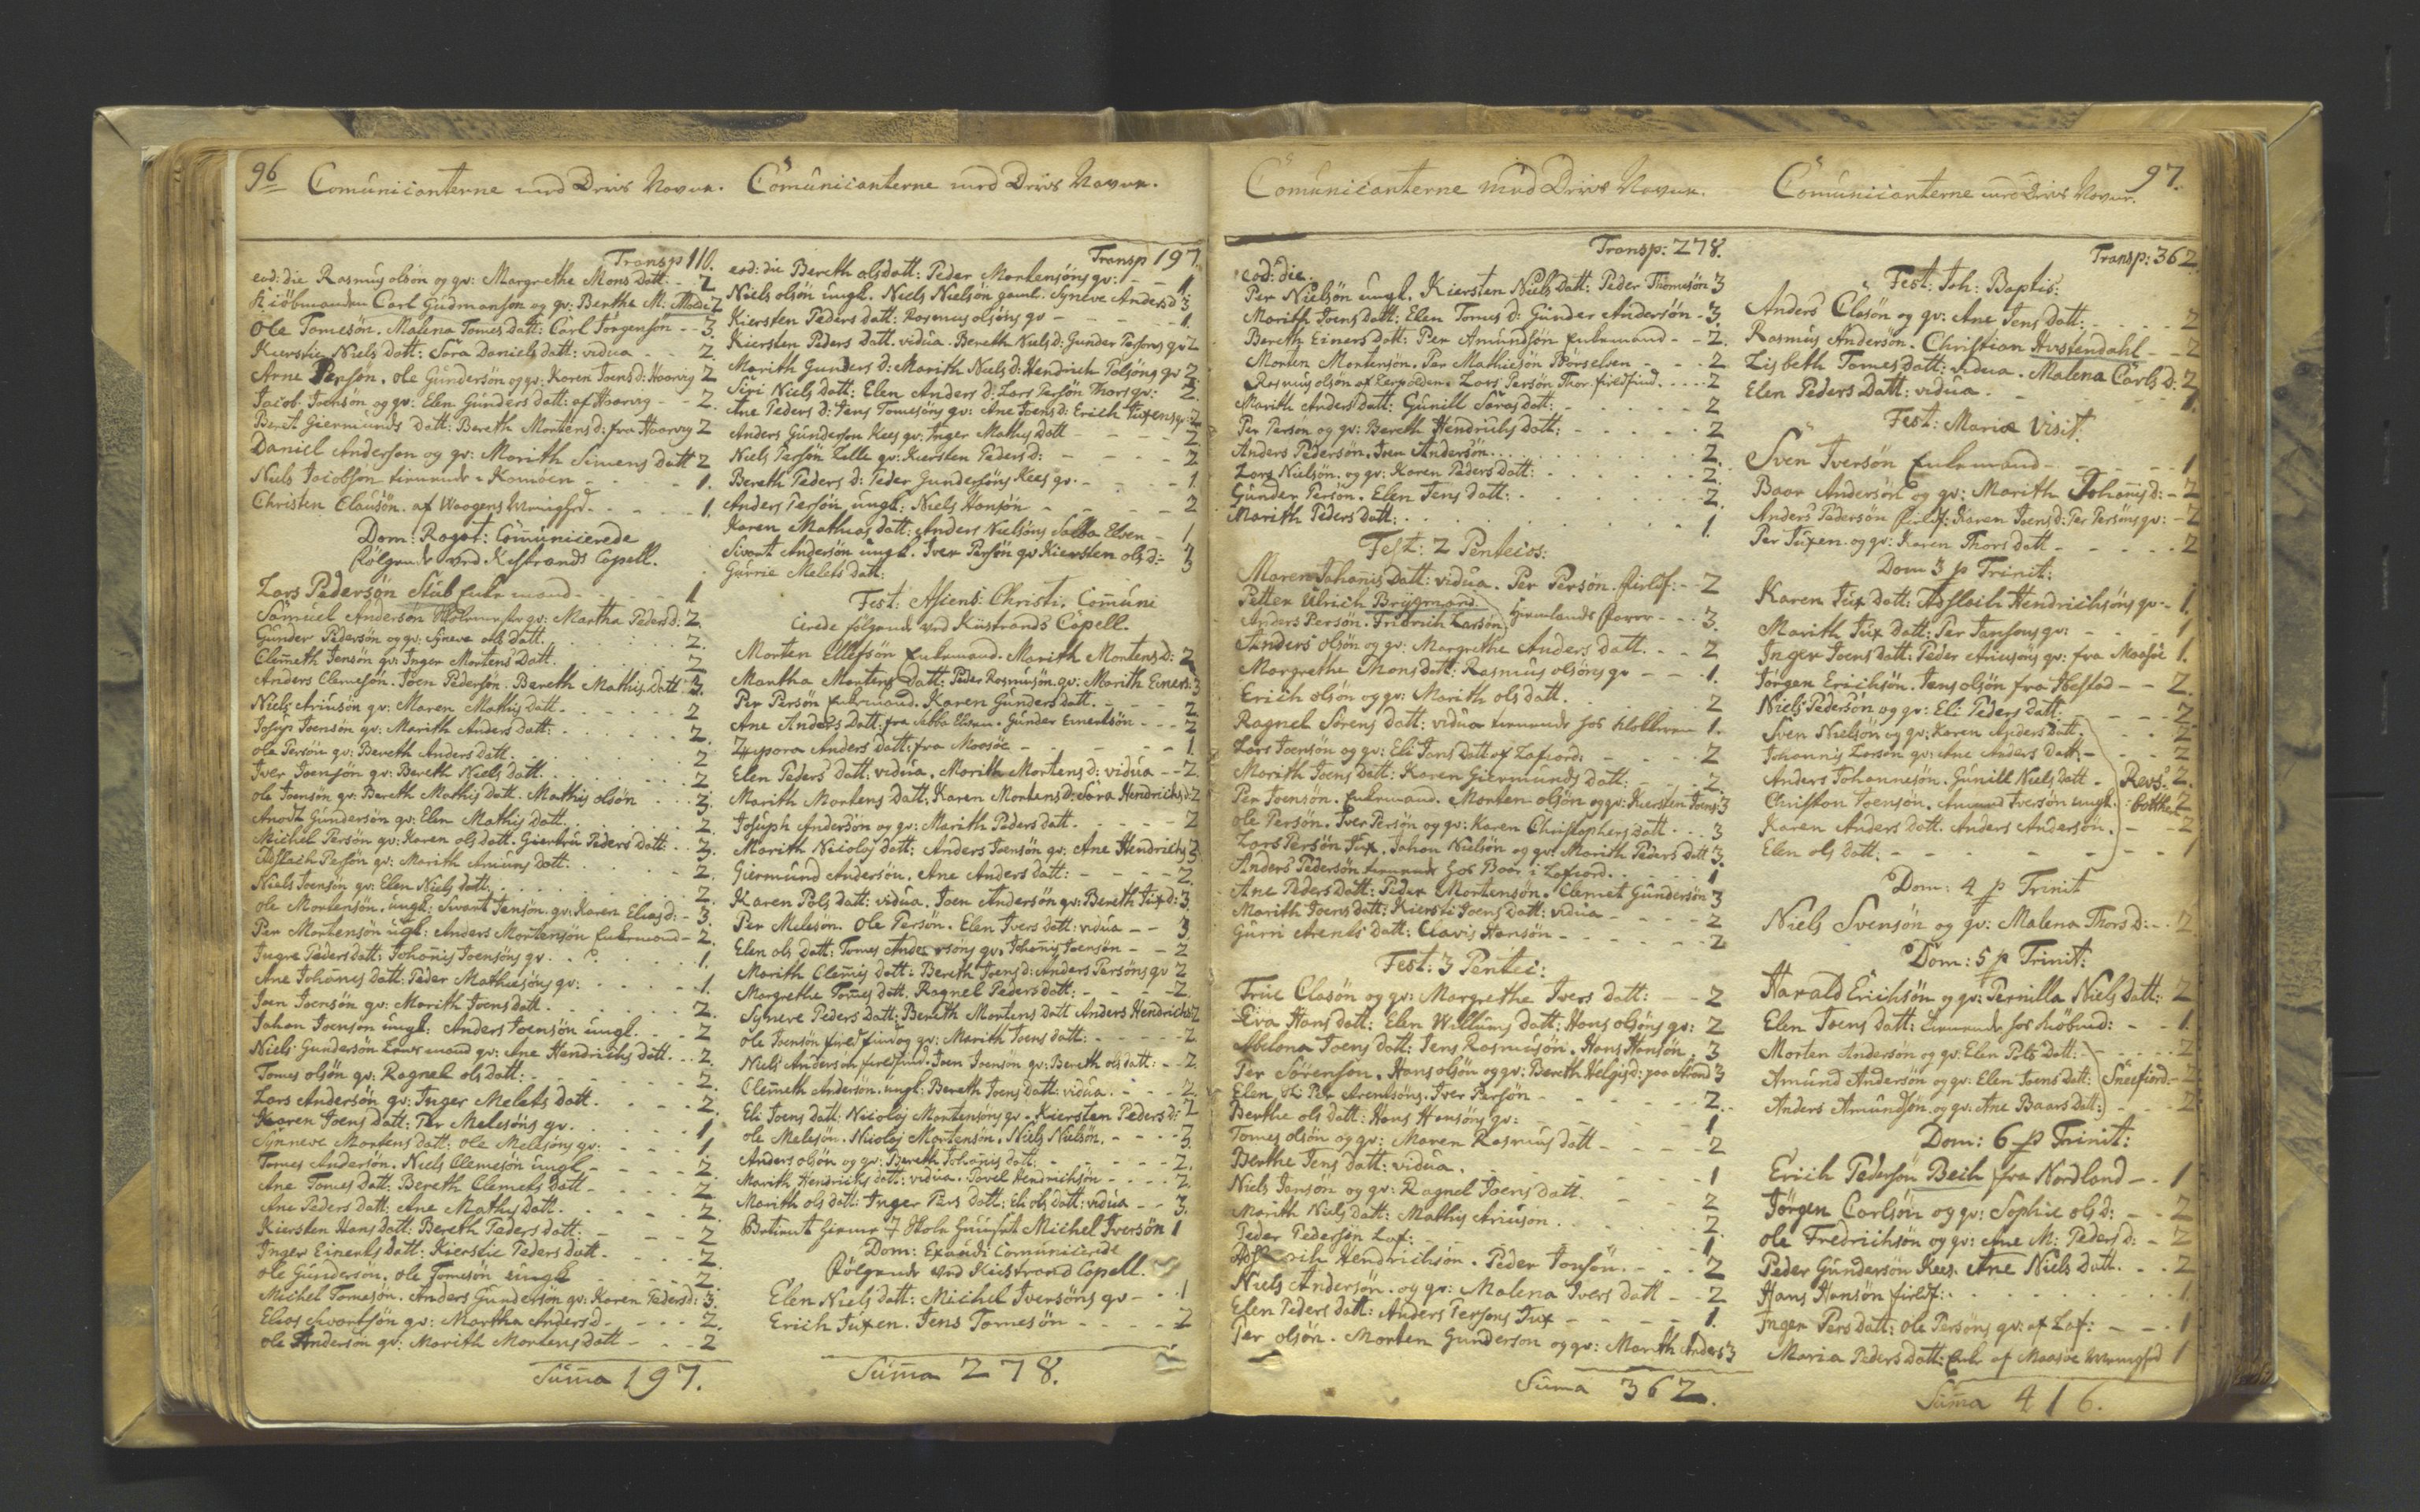 96 Com̄unicanterne med Deris Navne.
Transp 110.
eod: die Rasmus olsön og qv: Margrethe Mons Datt: - 2
Kiöbmanden Carl Gudmansön og qv: Berthe M: 2
Ole Tomesön. Malena Tomes datt: Carl Jörgensön - - 3.
Kierstie Niels datt: Sara Daniels datt: vidua - - 2.
Arne Persön. ole Gundersön og qv: Karen Joens d: Haarvig 2
Jacob Joensön og qv: Elen Gunders datt: af Haarvig - - 2.
Beret Giermunds datt: Bereth Mortens d: fra Haarvig 2
Daniel Anderson og qv: Marith Simens datt 2
Niels Jacobson tienende i Kamöen - - - 1.
Christen Clausön. af Waagens - - - 1.
Dom: Rogat: Com̄unicerede
fölgende ved Kistrands Capell.
Lars Pedersön Stub Enkemand - - - 1
Samuel Andersön qv: Martha Peders d: 2
Gunder Pedersön og qv: Syneve ols datt. 2.
Clemeth Jensön qv: Inger Mortens Datt. 2
Anders Clemesön. Joen Pedersön. Bereth Mathis datt 3.
Niels Ariusön qv: Maren Mathis datt. 2
Josup Joensön qv: Marith Anders datt: 2.
ole Persön qv: Bereth Anders datt. 2
Iver Joensön qv: Bereth Niels datt. 2
ole Joensön qv: Bereth Mathis datt. Mathis olsön 3.
Anort Gundersön qv: Elen Mathis datt. 2.
Michel Persön qv: Karen ols datt. Giertru Peders datt 3.
Adslach Persön qv: Marith Ariuns datt. 2.
Niels Joensön qv: Elen Niels datt. 2.
ole Mortensön. ungk: Sivart Jensön qv: Karen Elias d: - 3.
Per Mortensön ugk: Anders Mortensön Enkemand - 2.
Ingre Peders datt: Johañis Joensöns qv. 1.
Ane Johañis datt: Peder Mathiesöns qv: 1.
Joen Joensön qv: Marith Joens datt. 2.
Johan Joenson ungk: Anders Joensön ungk. 2
Niels Gundersön qv: Ane Hendrichs datt. 2.
Tomes olsön qv: Ragnel ols datt: 2.
Lars Andersön qv: Inger Melets datt. 2.
Karen Joens datt: Per Melesöns qv. 1
Synneve Mortens datt: ole Melesöns qv: 1
Tomes Andersön. Niels Clemesön ungk - 2
Ane Tomes datt: Bereth Clemets datt - 2
Ane Peders datt: Ane Mathis datt. 2.
Kiersten Hans datt: Bereth Peders datt: - 2
Inger Einerts datt: Kierstie Peders datt - 2.
ole Gundersön. ole Tomesön ungk 2
Michel Tomesön. Anders Gundersön qv: Karen Peders d: 3.
Elias Sivartsön qv: Martha Anders d - 2.
ole Andersön qv: Marith Mortens datt - 2
Suma 197.
Com̄unicanterne med Deris Navne.
Transp 197.
eod: die Bereth ols datt: Peder Mortensöns qv: - 1
Niels olsön ungk. Niels Nielsön gaml. Syneve Anders d 3
Kiersten Peders datt: Rasmus olsöns qv - 1.
Kiersten Peders Datt. vidua. Bereth Niels d: Gunder Persöns qv 2
Marith Gunders d: Marith Niels d: Hendrich Polsöns qv 2
Siri Niels datt: Elen Anders d: Lars Persön Thors qv: 2.
Ane Peders d: Jens Tomesöns qv: Ane Joens d: Erich Tuxens qv: 2
Anders Gunderson Kees qv: Inger Mathis datt - 2
Niels Persön Lille qv: Kiersten Peders d: - 2
Bereth Peders d: Peder Gundersöns Kees qv. - 1
Anders Persön ungk: Niels Hansön - 2
Karen Mathias datt: Anders Nielsöns Salba Elven - 1
Sivart Andersön ungk. Iver Persön qv Kiersten ols d: 3
Gurrie Melets datt:
Fest: Asiens: Christi. Com̄uni
cerede fölgende ved Kistrands Capell.
Morten Ellefsön Enkemand. Marith Mortens d: 2
Martha Mortens datt: Peder Rasmusön qv: Marith Einers: 3
Per Persön Enkemand. Karen Gunders datt. - 2
Ane Anders datt: fra Elven. Gunder Einertsön - 2
Zypora Anders datt: fra Maasöe - 1.
Elen Peders datt: vidua. Marith Mortens d: vidua - 2.
Marith Mortens datt: Karen Mortens d: Sara Hendrichs d: 3
Josuph Andersön og qv: Marith Peders datt. - 2
Marith Nicolaj datt: Anders Joensön qv: Ane Hendrichs 3
Giermund Andersön. Ane Anders datt: - 2.
Karen Pols datt: vidua. Joen Andersön qv: Bereth Tux d: 3
Per Melesön. Ole Persön. Elen Ivers datt: vidua - 3.
Elen ols datt: Tomes Andersöns qv. Johañis Joensön - 2
Marith Clemis datt: Bereth Joens d: Anders Persöns qv 2
Margrethe Tomes datt. Ragnel Peders datt: - 2.
Syneve Peders datt: Bereth Mortens datt Anders Hendrichs 2
ole Joensön field find og qv: Marith Joens datt: - 2
Niels Andersön fieldfind. Joen Joensön qv: Bereth ols datt: - 2.
Clemeth Andersön. ungk: Bereth Joens datt: vidua. - 2.
Eli Joens datt: Nicolaj Mortensöns qv. Kiersten Peders d: 2
ole Melesön. Nicolaj Mortensön. Niels Nielsön. - 3.
Anders olsön og qv: Bereth Johañis datt: - 2.
Marith Hendrichs datt: vidua. Povel Hendrichsön - 2.
Marith ols datt: Inger Pers datt: Eli ols datt: vidua - 3.
Michel Iversön 1
Dom: Exaudi Comunicerede
fölgende ved Kistrand Capell.
Elen Niels datt: Michel Iversöns qv - 1
Erich Tuxen. Jens Tomesön - 2
Suma 278.
Com̄unicanterne med Deris Navne.
Transp: 278.
eod: die.
Per Nielsön ungk. Kiersten Niels Datt: Peder Thomesön 3
Marith Joens datt: Elen Tomes d: Gunder Andersön - 3.
Bereth Einers datt: Per Amundsön Enkemand - 2.
Morten Mortensön. Per Mathiesön Pörselven - 2
Rasmus olsön af Lerpolden. Lars Persön Thor. fieldfind. 2
Marith Anders datt: Gunill Saras datt: - 2
Per Person og qv: Bereth Hendrichs datt: 2
Anders Pedersön. Joen Andersön. 2.
Lars Nielsön. og qv: Karen Peders datt: 2.
Gunder Persön. Elen Jens datt: 2.
Marith Peders datt: 1.
Fest: 2 Pentecos:
Maren Johañis Datt: vidua. Per Persön. fieldf: - 2
Petter Ulrich Brygmand
Anders Person. Fridrich Larsön 3.
Anders olsön og qv: Margrethe Anders datt. - 2
Margrethe Mons datt: Rasmus olsöns qv - 1.
Erich olsön og qv: Marith ols datt. 2
Ragnel Sörens datt: vidua tienende hos Klokkeren 1.
Lars Joensön og qv: Eli Jans datt af Lafiord: 2
Marith Joens datt: Karen Giermunds datt: - 2.
Per Joensön. Enkemand. Morten olsön og qv: Kiersten Joens: 3
ole Persön. Iver Persön og qv: Karen Christophers datt 3
Lars Persön Tux. Johan Nielsön og qv: Marith Peders datt 3.
Anders Pedersön tienende hos Baar i Lafiord. 1
Ane Peders datt: Peder Mortensön. Clemet Gundersön 3
Marith Joens datt: Kiersti Joens datt: vidua - 2
Gurri Arents datt: Clavis Hansön - 2
Fest: 3 Pentec:
True Clasön og qv: Margrethe Ivers datt: - 2
Eva Hans datt: Elen Willums datt: Hans olsöns qv: 2
Abelona Joens datt: Jens Rasmusön. Hans Hansön. 3
Per Sörenson. Hans olsön og qv: Bereth Helgis d: paa Strand 3
Elen Per Arentsöns. Iver Persön - 2.
Berthe ols datt: Hans Hansöns qv: - 1
Tomes olsön og qv: Maren Rasmus datt - 2
Berthe Jens datt: vidua. 1
Niels Jensön og qv: Ragnel Joens datt. 2
Marith Niels datt: Mathis Ariuson. 2.
Peder Pedersön Laf: 1
Hendrichsön. Peder Jonsön. 2
Niels Andersön. og qv: Malena Ivers datt - 2
Elen Peders datt: Anders Persöns Tux - 1.
Per olsön. Morten Gundersön og qv: Marith Anders 3
Suma 362.
Com̄unicanterne med Deris Navne.
97.
Transp: 362
Fest: Joh: Baptis:
Anders Clasön og qv: Ane Jens datt: 2
Rasmus Andersön. Christian Avstendahl - 2
Lisbeth Tomes datt: vidua. Malena Carls d: 2
Elen Peders datt: vidua. 1.
Fest: Mariæ Visit:
Sven Iversön Enkemand - 1
Baar Andersön og qv: Marith Johañis d: - 2
Anders Pedersön fieldf: Karen Joens d: Per Persöns qv: - 2
Per Tuxen. og qv: Karen Thors datt - 2
Dom 3 p Trinit:
Karen Tux datt: Adslach Hendrichsöns qv - 1.
Marith Tux datt: Per Jansons qv: - 1
Inger Joens datt: Peder Ariusöns qv: fra Maasöe 1.
Jörgen Erichsön. Jens olsön fra Ibestad - 2.
Niels Pedersön og qv: Eli Peders datt: - 2.
Sven Nielsön og qv: Karen Anders datt: 2
Johannis Larsön qv: Ane Anders datt - 2
Anders Johannesön. Gunill Niels datt - Revs: 2.
Christen Joensön. Amund Iversön ungk. botten 2
Karen Anders datt. Anders Andersön. - 2
Elen ols datt: - 1
Dom: 4 p Trinit
Niels Svensön og qv: Malena Thors d: - 2
Dom: 5 p Trinit:
Harald Erichsön og qv: Pernilla Niels datt: 2
Elen Joens datt: tienende hos Kiöbmd: - 1
Morten Andersön og qv: Elen Pols datt: 2
Amund Andersön og qv: Elen Joens datt: Sneefiord: - 2
Anders Amundsön. og qv: Ane Baars datt: 2
Dom: 6 p Trinit:
Erich Pedersön Beth fra Nordland - 1
Jörgen Carlsön og qv: Sophie ols d: - 2
ole Fredrichsön og qv: Ane M: Peders d: - 2
Peder Gundersön Kees. Ane Niels datt. 2
Hans Hansön fieldf: 1
Inger Pers datt: Ole Persöns qv: af Laf: - 1
Maria Peders datt: Enke af Maasöe 1
Suma 416.